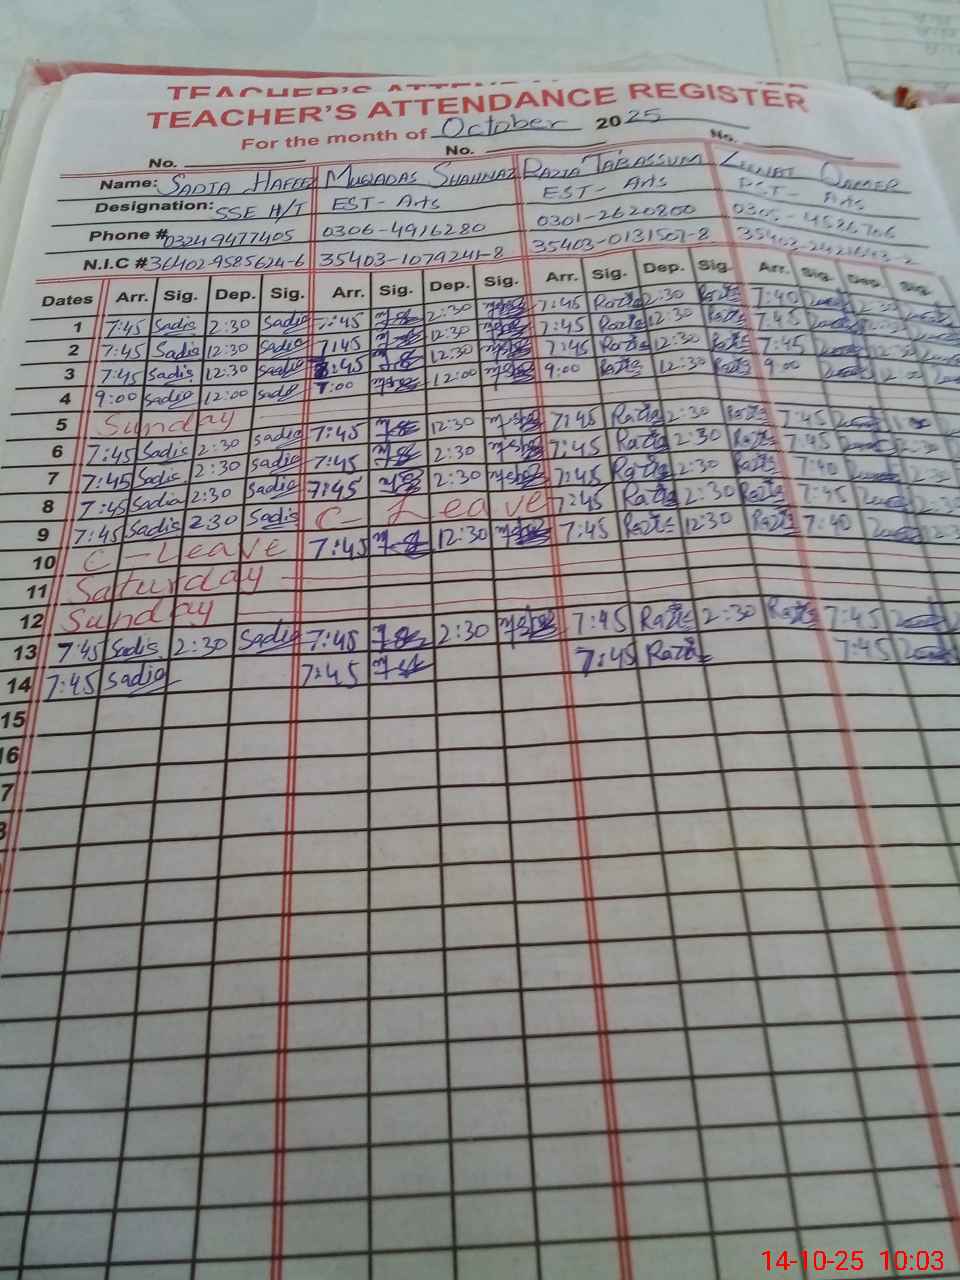 TEACHER'S ATTENDANCE REGISTER
TEACHER'S ATTENDANCE REGISTER
For the month of October 2025
No. No. No.
Name: SADIA HAFEE MUQADAS SHAHNAZ RAZIA TABASSUM QAMER
Designation: SSE H/T EST- Arts EST- Arts Arts
Phone # 03249477405 0306-4916280 0301-2620800 0305-4586706
N.I.C # 36402-9585624-6 35403-1079241-8 35403-0131507-8
Dates Arr. Sig. Dep. Sig. Arr. Sig. Dep. Sig. Arr. Sig. Dep. Sig. Arr. Sig. Dep. Sig.
1 7:45 Sadia 2:30 Sadia 7:45 2:30 7:45 Razia 2:30 Razia 7:40 2:30
2 7:45 Sadia 12:30 Sadia 7:45 12:30 7:45 Razia 12:30 Razia 7:45
3 7:45 Sadia 12:30 Sadia 7:45 12:30 7:45 Razia 12:30 Razia 7:45
4 9:00 Sadia 12:00 Sadia 9:00 12:00 9:00 Razia 12:30 Razia 9:00 12:00
5 Sunday
6 7:45 Sadia 2:30 Sadia 7:45 12:30 7:45 Razia 2:30 Razia 7:45
7 7:45 Sadia 2:30 Sadia 7:45 2:30 7:45 Razia 2:30 Razia 7:45 2:30
8 7:45 Sadia 2:30 Sadia 7:45 2:30 7:45 Razia 2:30 Razia 7:40 2:30
9 7:45 Sadia 2:30 Sadia C- Leave 7:45 Razia 2:30 Razia 7:45 2:30
10 C-Leave 7:45 12:30 7:45 Razia 12:30 Razia 7:40
11 Saturday
12 Sunday
13 7:45 Sadia 2:30 Sadia 7:45 2:30 7:45 Razia 2:30 Razia 7:45
14 7:45 Sadia 7:45 7:45 Razia 7:45
15
16
7
14-10-25 10:03